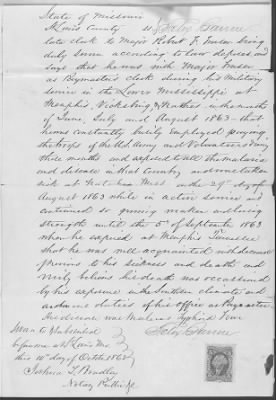 State of Missouri
St Louis County ss
late clerk to Major Robert F. being
duly sworn according to law deposes and
says that he was with Major
as Paymasters Clerk during his military
service in the Lower Mississippi at
Memphis, Vicksburg & Natchez in the months
of June, July and August 1863 - that
he was constantly busily employed paying
the troops of the U.S. Army and Volunteers during
those months and exposed to all the malaria
and disease in that country and was taken
sick at Miss on the 29th day of
August 1863 while in active service and
continued so growing weaker and losing
strength until the 5th of September 1863
when he expired at Memphis Tennessee
that he was well acquainted with deceased
previous to his sickness and death and
verily believes his death was occasioned
by his exposure in the Southern climate and
arduous duties of his office as Paymaster.
His disease was Typhoid Fever
Sworn to & subscribed
before me at St Louis Mo.
this 10th day of Octob. 1863
Joshua L. Bradley
Notary Public